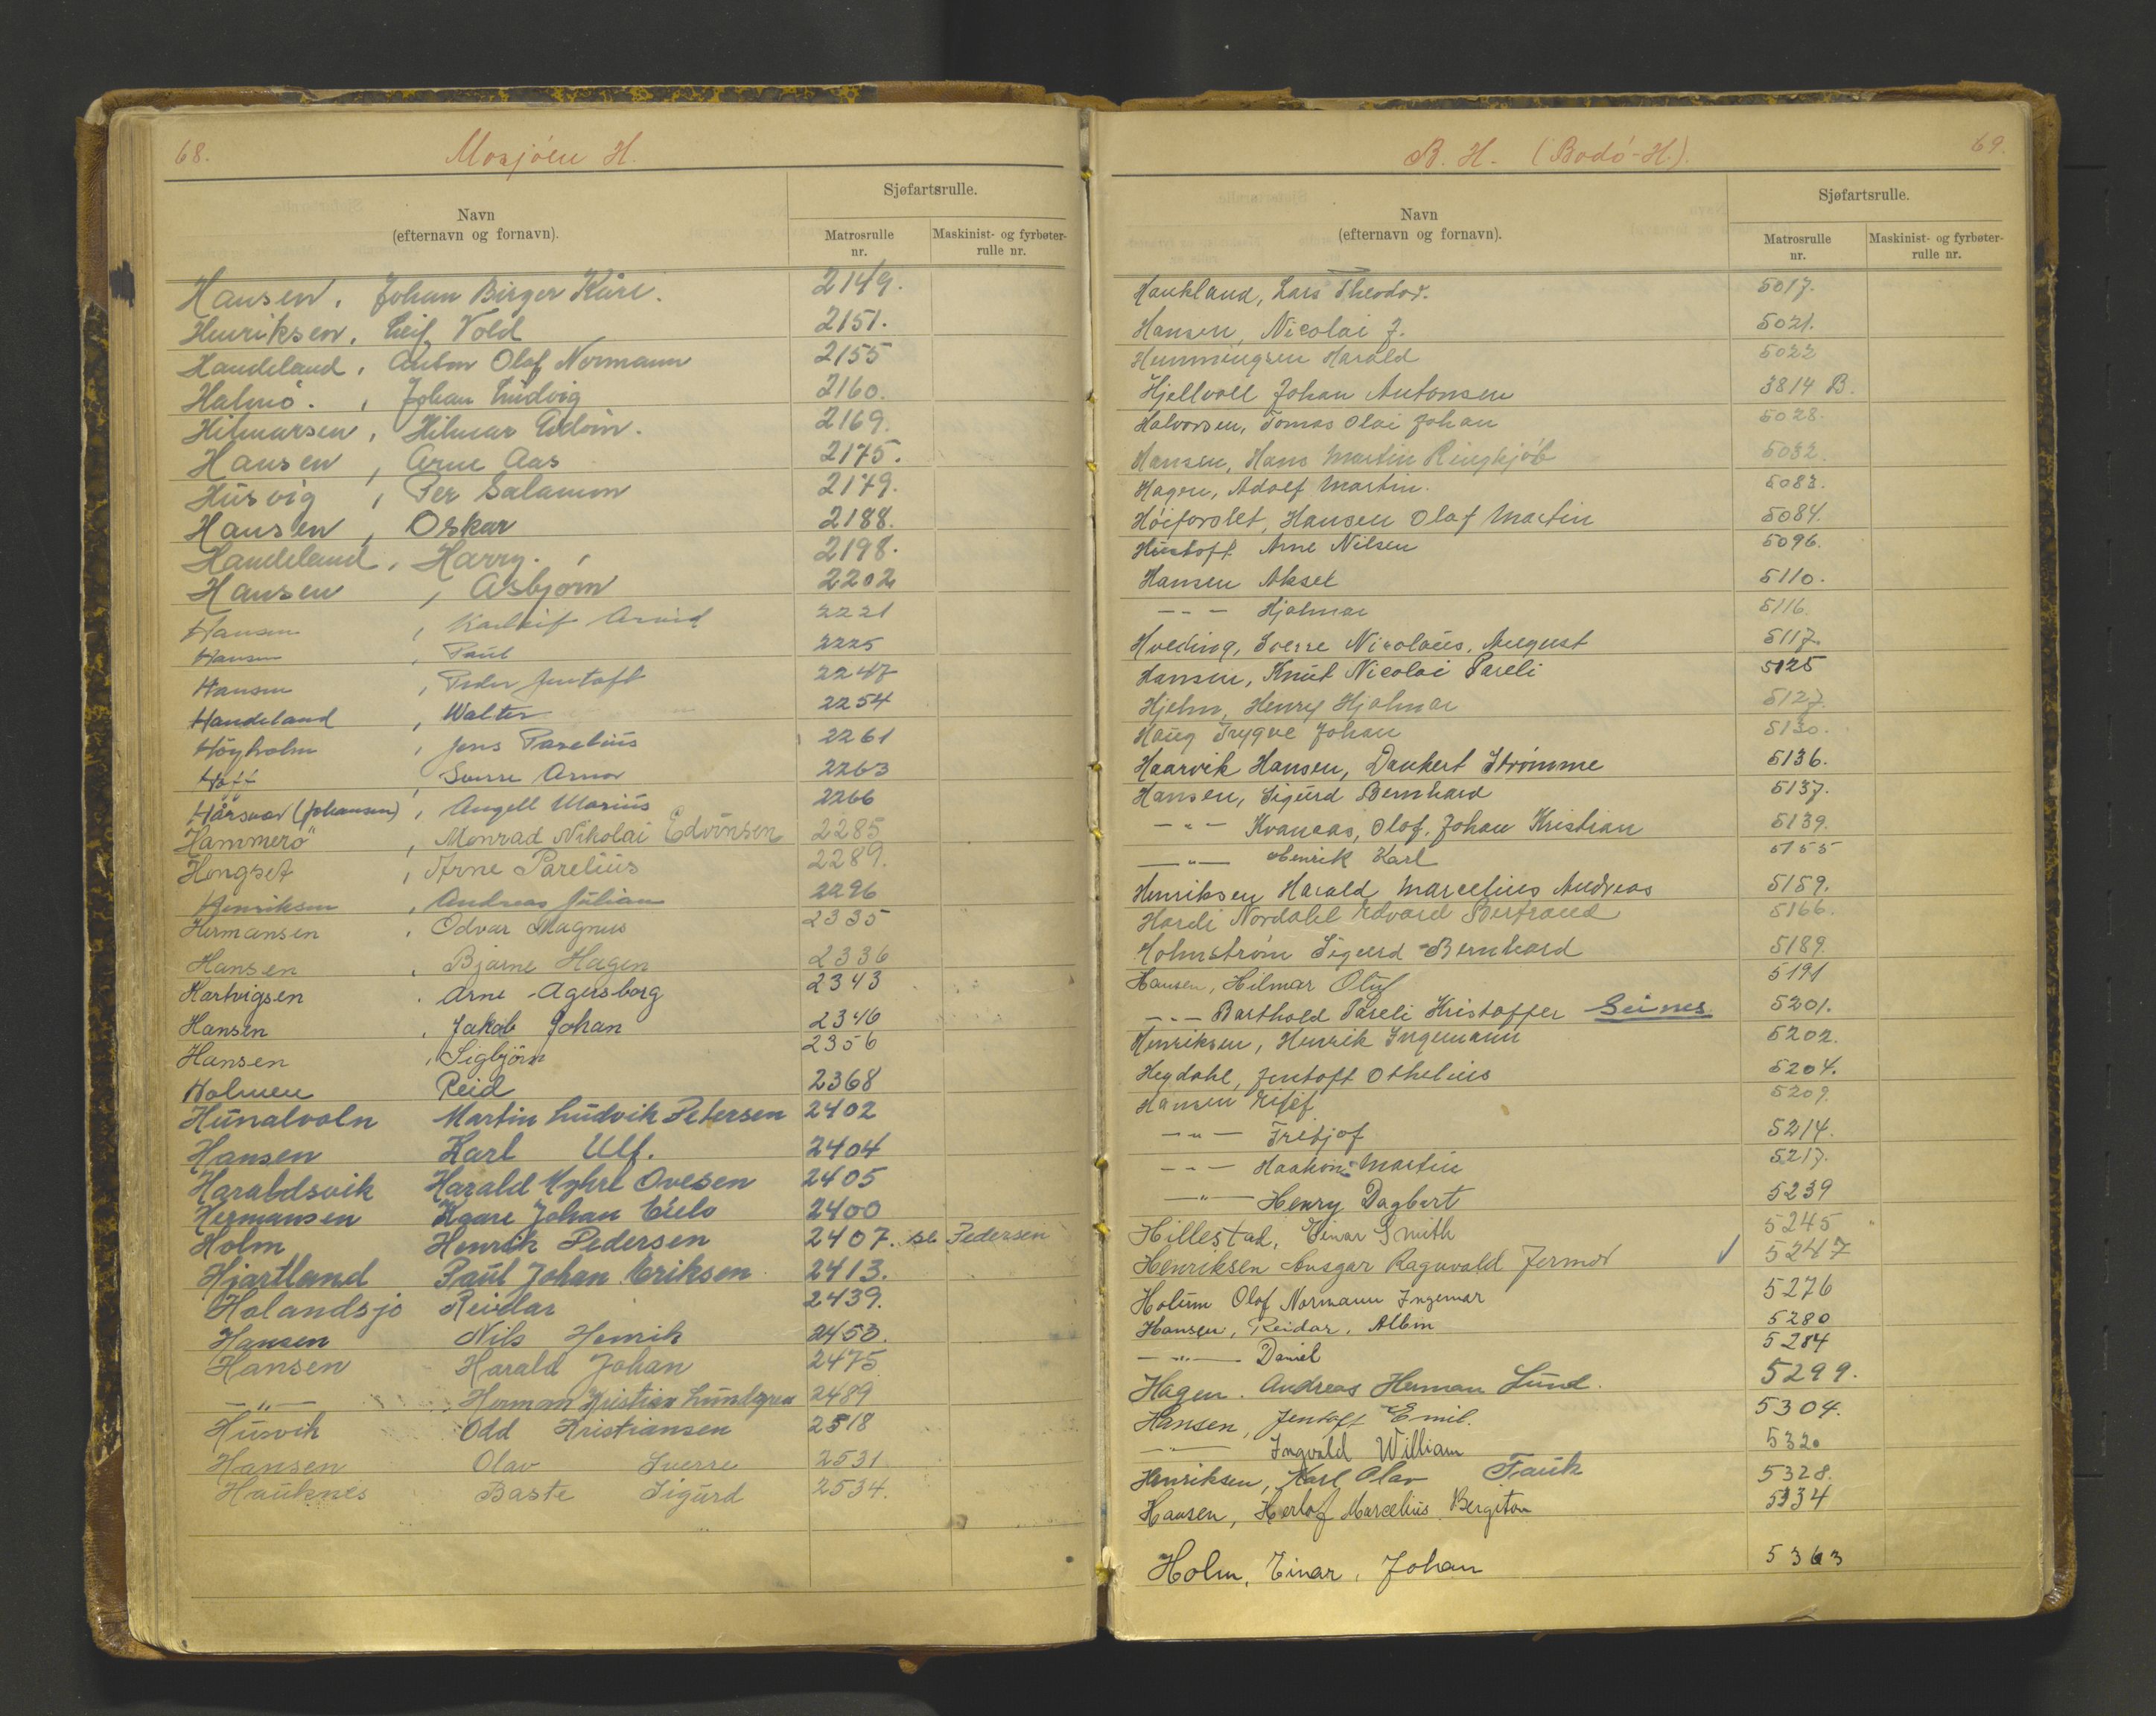 68.
Mosjöen H.
Navn
(efternavn og fornavn).
Sjøfartsrulle.
Matrosrulle
nr.
Maskinist- og fyrbøter-
rulle nr.
Hansen, Johan Birger Kåre. 2149.
Henriksen, Leif Vold 2151.
Handeland, Anton Olaf Normann 2155
Halmö. , Johan Ludvig 2160.
Hilmarsen, Hilmar Edvin. 2169.
Hansen, Arne Aas 2175.
Husvig, Per Salamon 2179.
Hansen, Oskar 2188.
Handeland, Harry. 2198.
Hansen, Asbjørn 2202
Hansen, Karleif Arvid 2221
Hansen, Paul 2225
Hansen, Peder Jentoft 2247
Handeland, Walter 2254
Höyholm, Jens Parelius 2261
Hoff, Sverre Arnor 2263
Hårsvær (Johansen), Angell Marius 2266
Hammerö, Monrad Nikolai Edvinsen 2285
Hongset, Arne Parelius 2289.
Henriksen, Andreas Julian 2296
Hermansen, Odvar Magnus 2335
Hansen, Bjarne Hagen 2336
Hartvigsen, Arne Agersborg 2343
Hansen, Jakob Johan 2346
Hansen, Sigbjörn 2356
Holmen Reid 2368
Hunalvoln Martin Ludvik Petersen 2402
Hansen Karl Ulf. 2404
Haraldsvik Harald Myhre Ovesen 2405
Hermansen Kaare Johan 2400
Holm Henrik Pedersen 2407. se Pedersen
Hjartland Paul Johan Eriksen 2413.
Holandsjö Reidar 2439.
Hansen Nils Henrik 2453.
Hansen Harald Johan 2475
— " — Herman Kristian Lundgren 2489
Husvik Odd Kristiansen 2518
Hansen Olav Sverre 2531
Hauknes Baste Sigurd 2534.
69.
B. H. (Bodö-H.).
Navn
(efternavn og fornavn).
Sjøfartsrulle.
Matrosrulle
nr.
Maskinist- og fyrbøter-
rulle nr.
Haukland, Lars Theodor. 5017.
Hansen, Nicolai J. 5021.
Hemmingsen Harald 5022
Hjellvoll Johan Antonsen 3814 B.
Halvorsen, Tomas Olai Johan 5028.
Hansen, Hans Martin Ringkjöb 5032.
Hagen, Adolf Martin. 5083.
Höiforslet, Hansen Olaf Martin 5084.
Hustoft Arne Nilsen 5096.
Hansen Aksel 5110.
— " — Hjalmar 5116.
Hveding, Sverre Nicolaus, August 5117.
Hansen, Knut Nicolai Pareli 5125
Hjelm, Henry Hjalmar 5127.
Haug Trygve Johan 5130.
Haarvik Hansen, Dankert Strömme 5136.
Hansen, Sigurd Bernhard 5137.
— " — Kvanaas, Olaf. Johan Kristian 5139.
— " — Henrik Karl 5155
Henriksen Harald Marcelius Andreas 5159.
Hardi Nordahl Edvard Bertrand 5166.
Holmström Sigurd Bernhard 5189.
Hansen, Hilmar Oluf 5191
— " — Barthold Pareli Kristoffer Seines. 5201.
Henriksen, Henrik Ingemann 5202.
Hegdahl, Jentoft Othelius 5204.
Hansen 5209.
— " — Fritjof 5214.
— " — Haakon Martin 5217.
— " — Henry Dagbart 5239
Hillestad, Einar Smith 5245
Henriksen Ansgar Ragnvald Jermor ✓ 5247
Holum Olof Normann Ingemar 5276
Hansen, Reidar, Albin 5280
— " — Daniel 5284
Hagen. Andreas Herman Lund. 5299.
Hansen, Jentoft Emil. 5304.
— " — Ingvald William 5320
Henriksen, Karl Olav Fauk 5328.
Hansen, Herlof Marcelius Bergiton 5334
Holm, Einar, Johan 5363